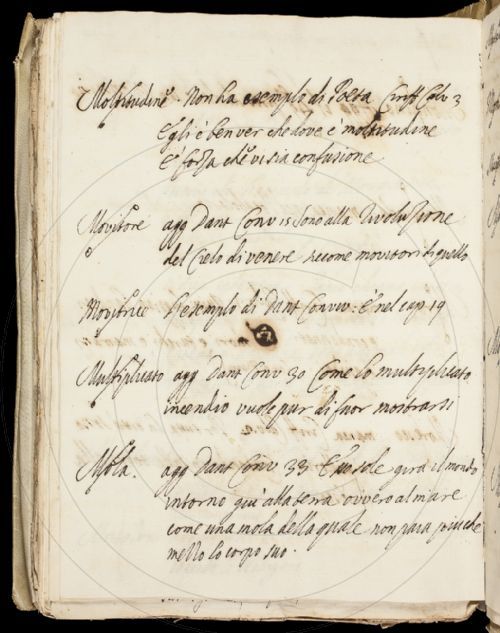 Moltitudine. Non ha esemplo di Poeta Ciriff Calv 3
Egli è ben ver che dove è moltitudine
E' forza che vi sia confusione
Movitore agg Dant Conv 15 sono alla Rivoluzione
del Cielo di venere siccome movitori di quello
Movitrice L'esemplo di Dant Conviv: è nel cap 19
Multiplicato agg Dant Conv 30 Come lo multiplicato
incendio vuole pur di fuor mostrarsi
Mola. agg Dant Conv 33 sole gira il mondo
intorno giù alla terra ovvero al mare
come una mola della quale non paia più che
mezzo lo corpo suo.